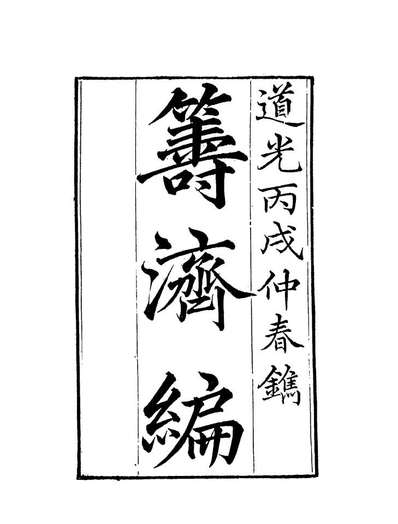 道光丙戌仲春鐫
籌濟編